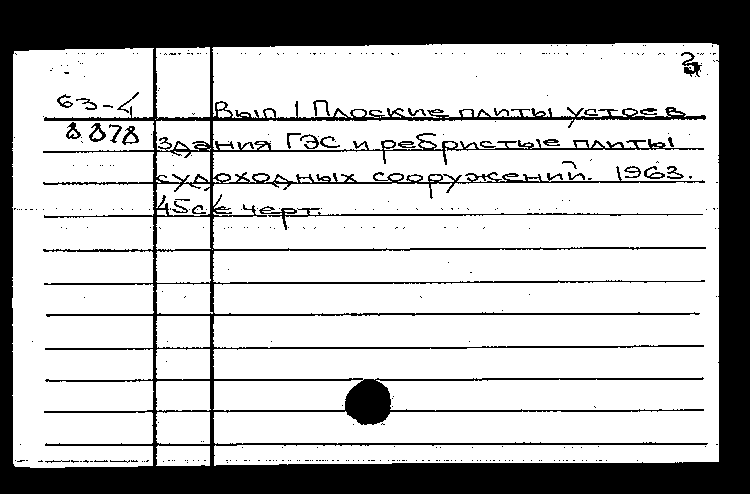 3
63-4 Вып 1 Плоские плиты устоев
8878 здания ГЭС и ребристые плиты
судоходных сооружений. 1963.
45с с черт.